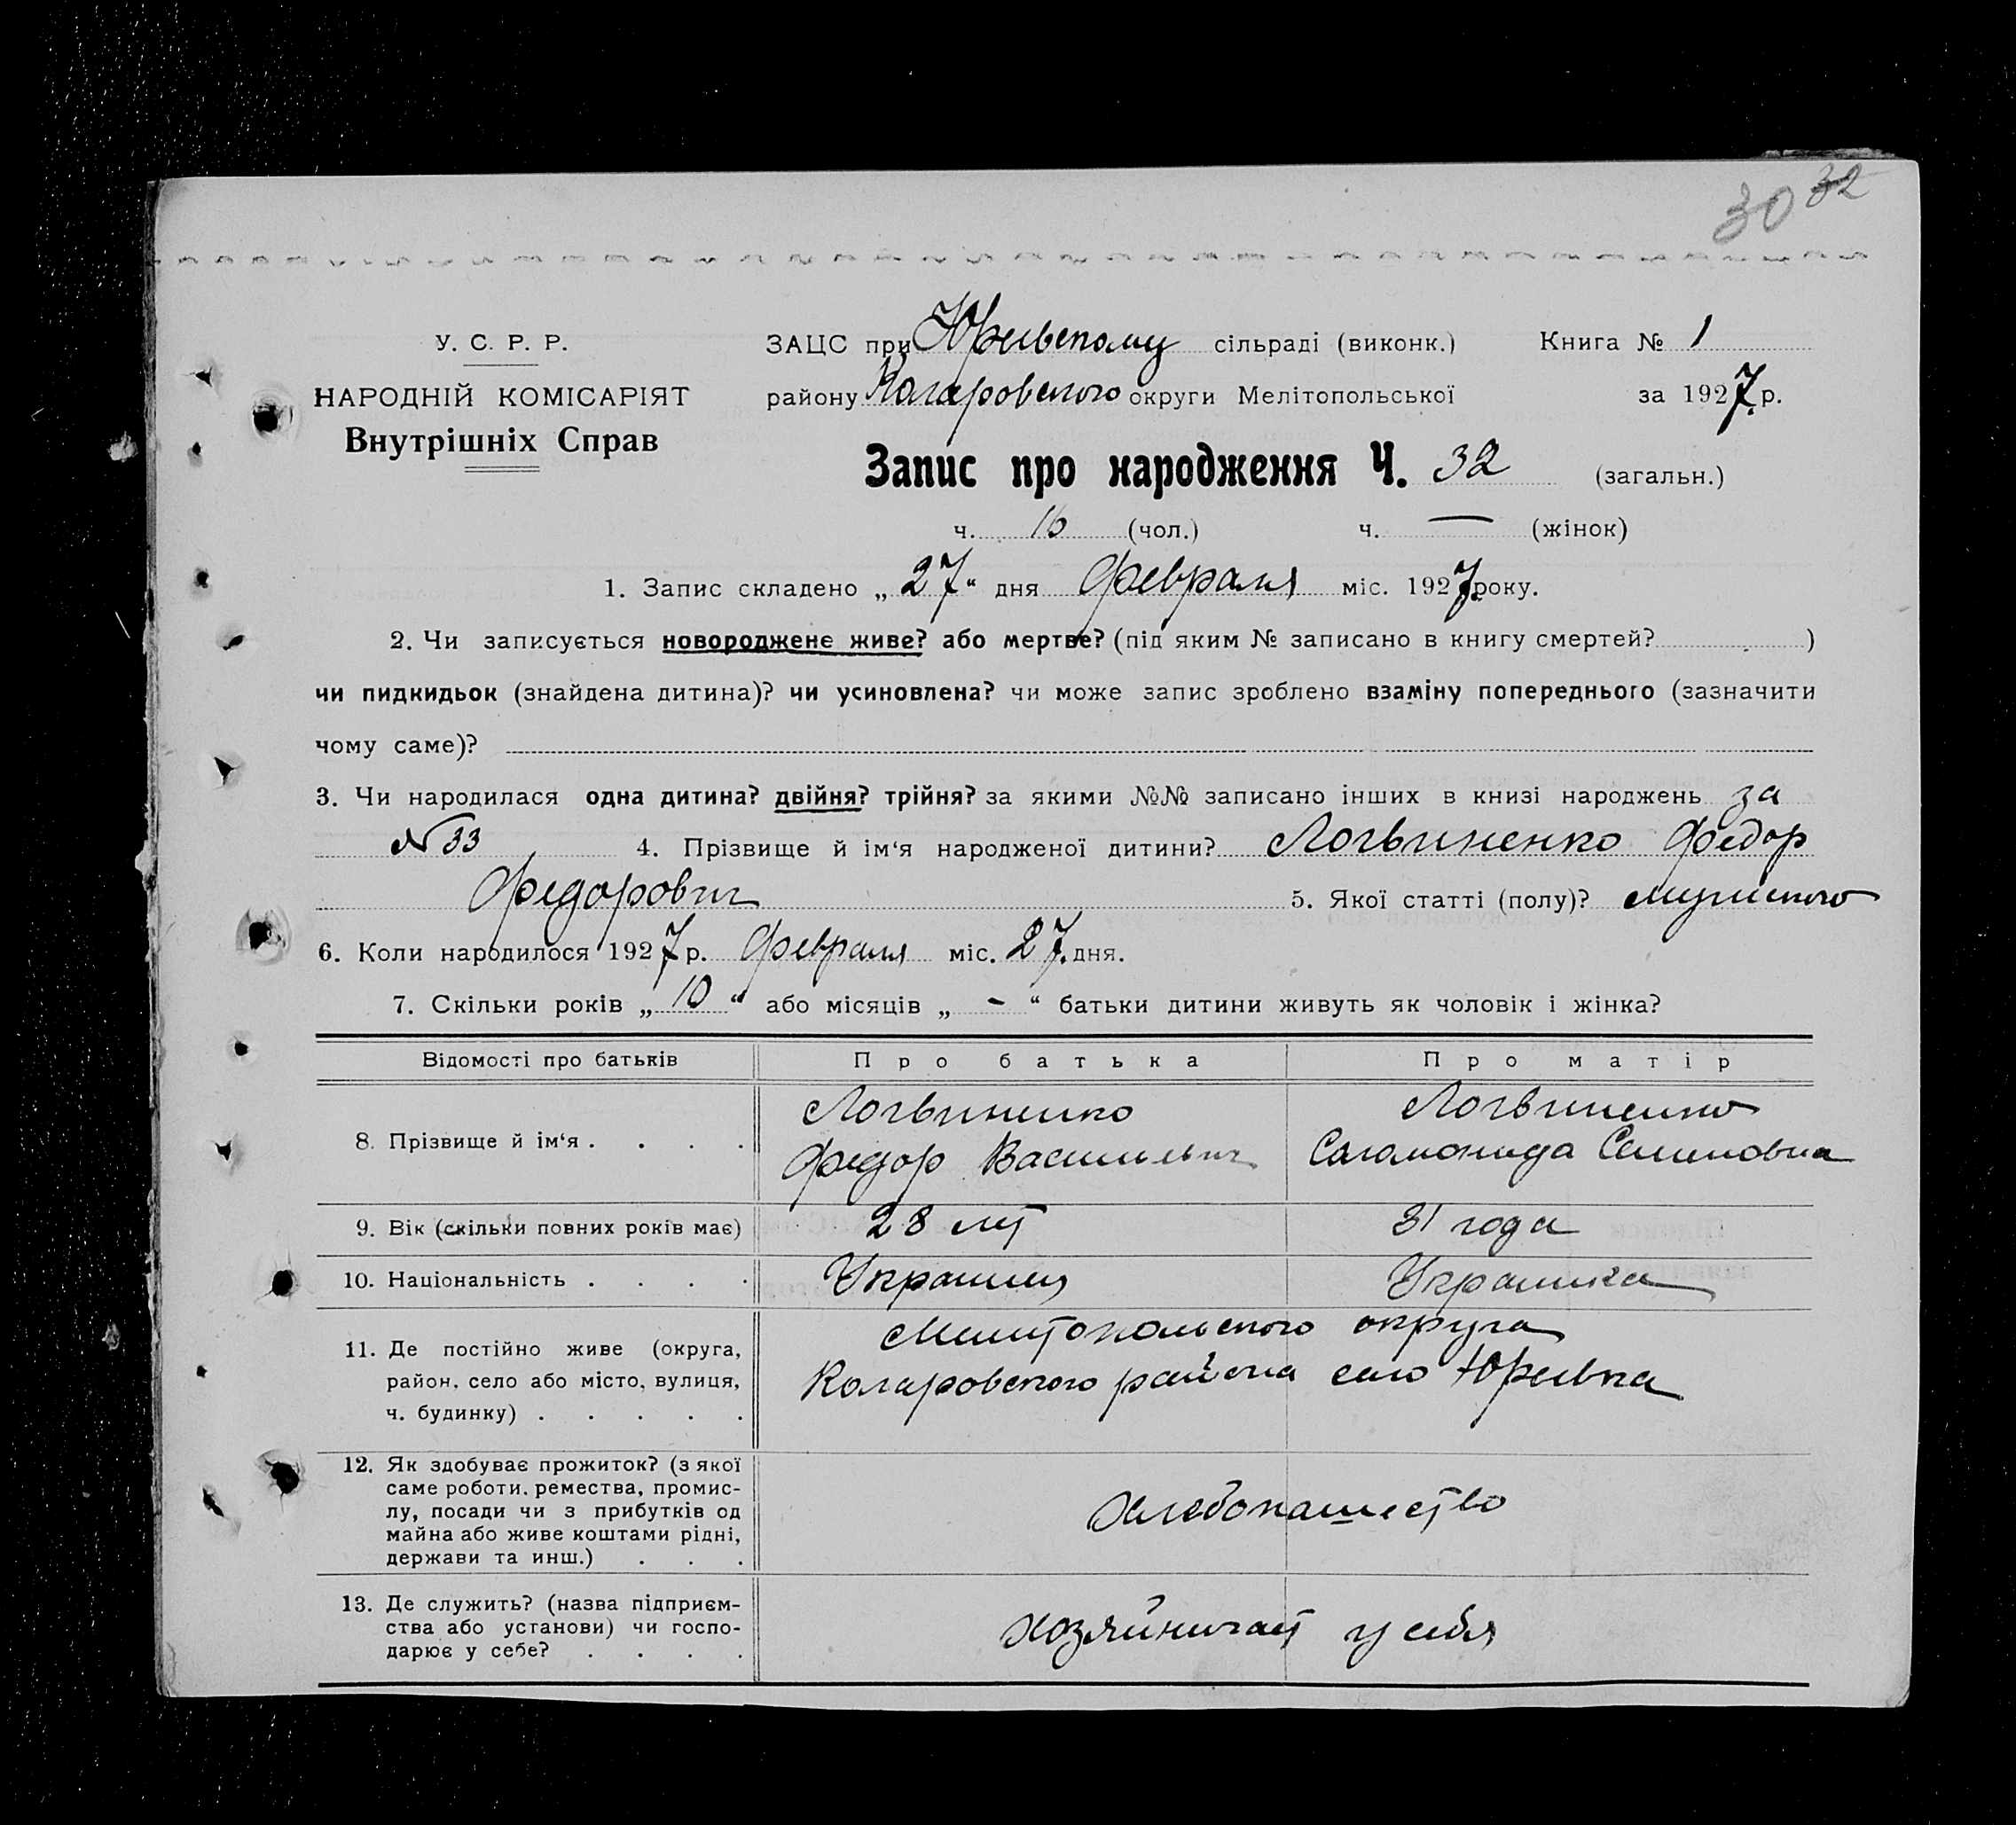 30 32
У. С. Р. Р.
НАРОДНІЙ КОМІСАРІЯТ
Внутрішніх Справ
ЗАЦС при Юрьевскому сільраді (виконк.) Книга № 1
району Коларовского округи Мелітопольської за 1927 р.
Запис про народження Ч. 32 (загальн.)
ч. 16 (чол.) ч. — (жінок)
1. Запис складено „27“ дня Февраля міс. 1927 року.
2. Чи записується новороджене живе? або мертве? (під яким № записано в книгу смертей? )
чи пидкидьок (знайдена дитина)? чи усиновлена? чи може запис зроблено взаміну попереднього (зазначити
чому саме)?
3. Чи народилася одна дитина? двійня? трійня? за якими №№ записано інших в книзі народжень за
№ 33 4. Прізвище й ім‘я народженої дитини? Логвиненко Федор
Федорович 5. Якої статті (полу)? мужского
6. Коли народилося 1927 р. Февраля міс. 27. дня.
7. Скільки років „10“ або місяців „-“ батьки дитини живуть як чоловік і жінка?
Відомості про батьків Про батька Про матір
8. Прізвище й ім‘я . . . . Логвиненко Федор Васильевич Логвиненко Саломонида Семеновна
9. Вік (скільки повних років має) 28 лет 31 года
10. Національність . . . . Украинец Украинка
11. Де постійно живе (округа,
район, село або місто, вулиця,
ч. будинку) . . . . .
Мелитопольского округа
Коларовского района село Юрьевка
12. Як здобуває прожиток? (з якої
саме роботи, ремества, промис-
лу, посади чи з прибутків од
майна або живе коштами рідні,
держави та инш.) . . .
Хлебопашество
13. Де служить? (назва підприєм-
ства або установи) чи госпо-
дарює у себе? . . . .
хозяйничает у себя